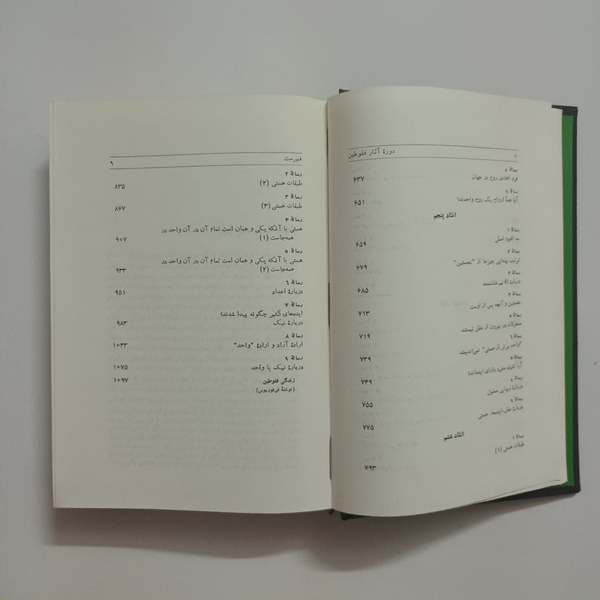 ۸ دورهٔ آثار فلوطین
رسالهٔ ۸
فرو افتادن روح در جهان
۶۳۷
رسالهٔ ۹
آیا همهٔ ارواح یک روح واحدند؟
۶۵۱
انئاد پنجم
رسالهٔ ۱
سه اقنوم اصلی
۶۵۹
رسالهٔ ۲
ترتیب پیدایی چیزها از "نخستین"
۶۷۹
رسالهٔ ۳
دربارهٔ اقانیم شناسنده
۶۸۵
رسالهٔ ۴
نخستین و آنچه پس از اوست
۷۱۳
رسالهٔ ۵
معقولات در بیرون از عقل نیستند
۷۱۹
رسالهٔ ۶
"واحد برتر از هستی" نمی‌اندیشد
۷۳۹
رسالهٔ ۷
آیا اشیاء مفرد دارای ایده‌اند؟
۷۴۹
رسالهٔ ۸
دربارهٔ زیبایی معقول
۷۵۵
رسالهٔ ۹
دربارهٔ عقل، ایده‌ها، هستی
۷۷۵
انئاد ششم
رسالهٔ ۱
طبقات هستی (۱)
۷۹۳
فهرست ۹
رسالهٔ ۲
طبقات هستی (۲) ۸۳۵
رسالهٔ ۳
طبقات هستی (۳) ۸۶۷
رسالهٔ ۴
هستی با آنکه یکی و همان است تمام آن در آن واحد در
همه‌جاست (۱) ۹۰۷
رسالهٔ ۵
هستی با آنکه یکی و همان است تمام آن در آن واحد در
همه‌جاست (۲) ۹۳۳
رسالهٔ ۶
دربارهٔ اعداد ۹۵۱
رسالهٔ ۷
ایده‌های کثیر چگونه پیدا شدند؟
دربارهٔ نیک ۹۸۳
رسالهٔ ۸
ارادهٔ آزاد و ارادهٔ "واحد" ۱۰۴۳
رسالهٔ ۹
دربارهٔ نیک یا واحد ۱۰۷۵
زندگی فلوطین ۱۰۹۷
(نوشتهٔ فرفوریوس)